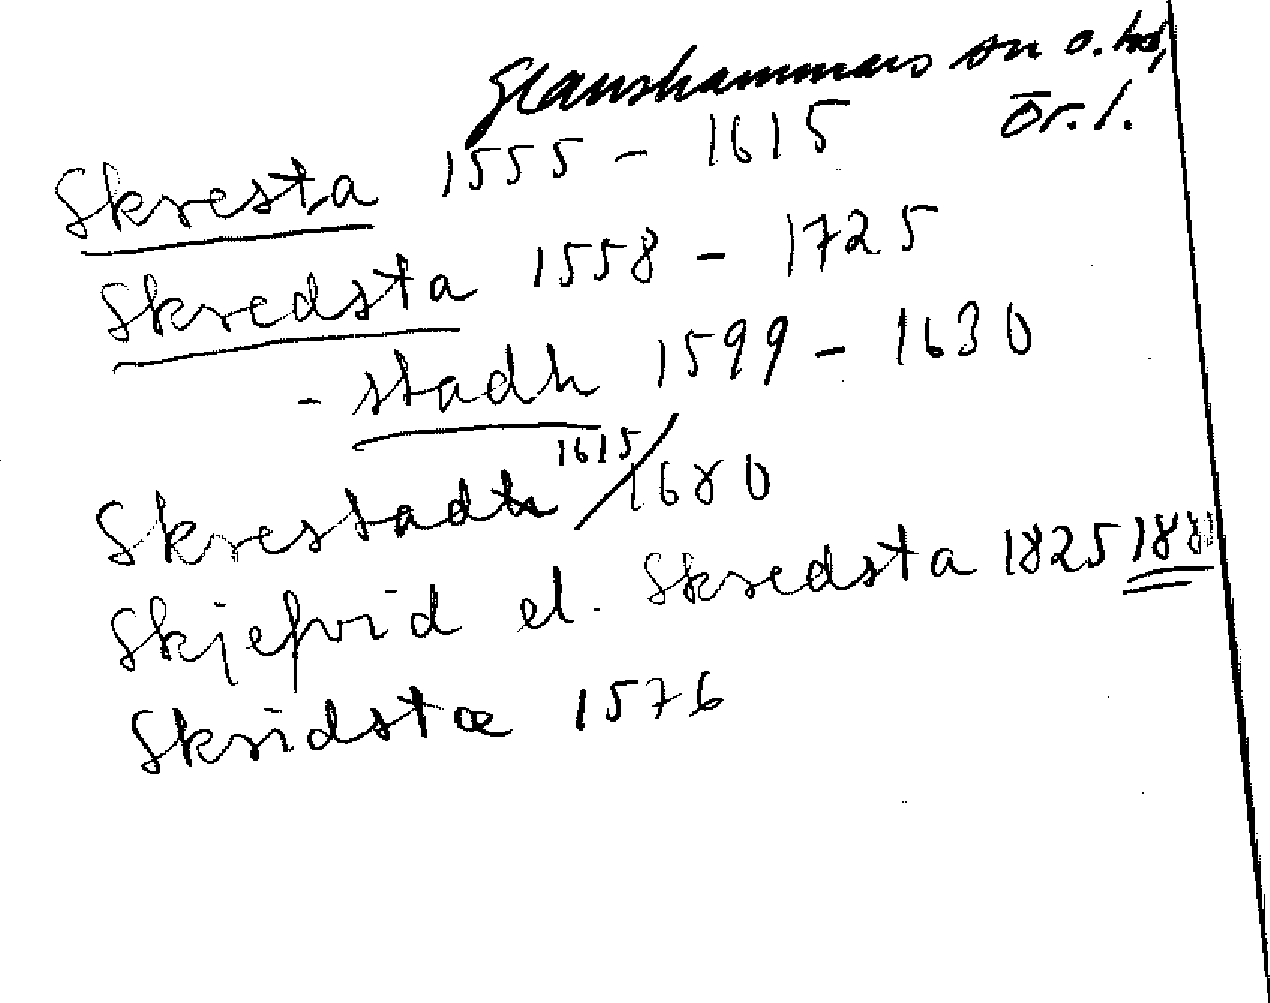 Glanshammars sn o. hd,
Ör. l.
Skresta 1555 - 1615
Skredsta 1558 - 1725
- stadh 1599 - 1630
Skrestadh 1615/1680
Skjefvid el. Skredsta 1825 1881
Skridstæ 1576